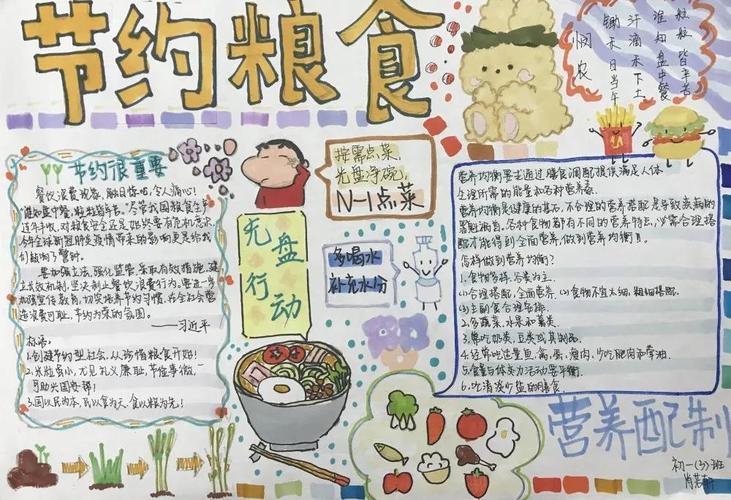 节约粮食
悯农
锄禾日当午
汗滴禾下土
谁知盘中餐
粒粒皆辛苦
节约很重要
餐饮浪费现象,触目惊心,令人痛心!
谁知盘中餐,粒粒皆辛苦。尽管我国粮食生产
连年丰收,对粮食安全还是始终要有危机意识,
今年全球新冠肺炎疫情所带来的影响更是给我
们敲响了警钟。
要加强立法,强化监管,采取有效措施,建
立长效机制,坚决制止餐饮浪费行为。要进一步
加强宣传教育,切实培养节约习惯,在全社会营
造浪费可耻、节约为荣的氛围。
——习近平
标语:
1.创建节约型社会,从珍惜粮食开始!
2.米粒虽小,尤见礼义廉耻,节俭事微,
可助兴国安邦!
3.国以民为本,民以食为天,食以粮为先!
按需点菜,
光盘净碗,
N-1点菜
光盘行动
多喝水
补充水分
营养均衡要是通过膳食调配提供满足人体
生理所需的能量和各种营养素。
营养均衡是健康的基石,不合理的营养搭配是导致疾病的
罪魁祸首。各种食物都有不同的营养特点,必需合理搭
配才能得到全面营养,做到营养均衡!。
怎样做到营养均衡?
1.食物多样,谷类为主。
(1)合理搭配,全面营养 (2)食物不宜太细,粗细搭配
(3)主副食合理安排
2.多蔬菜,水果和薯类。
3.常吃奶类、豆类或其制品。
4.经常吃适量鱼、禽、蛋、瘦肉,少吃肥肉和荤油。
5.食量与体力活动要平衡。
6.吃清淡少盐的膳食
营养配制
初一(3)班